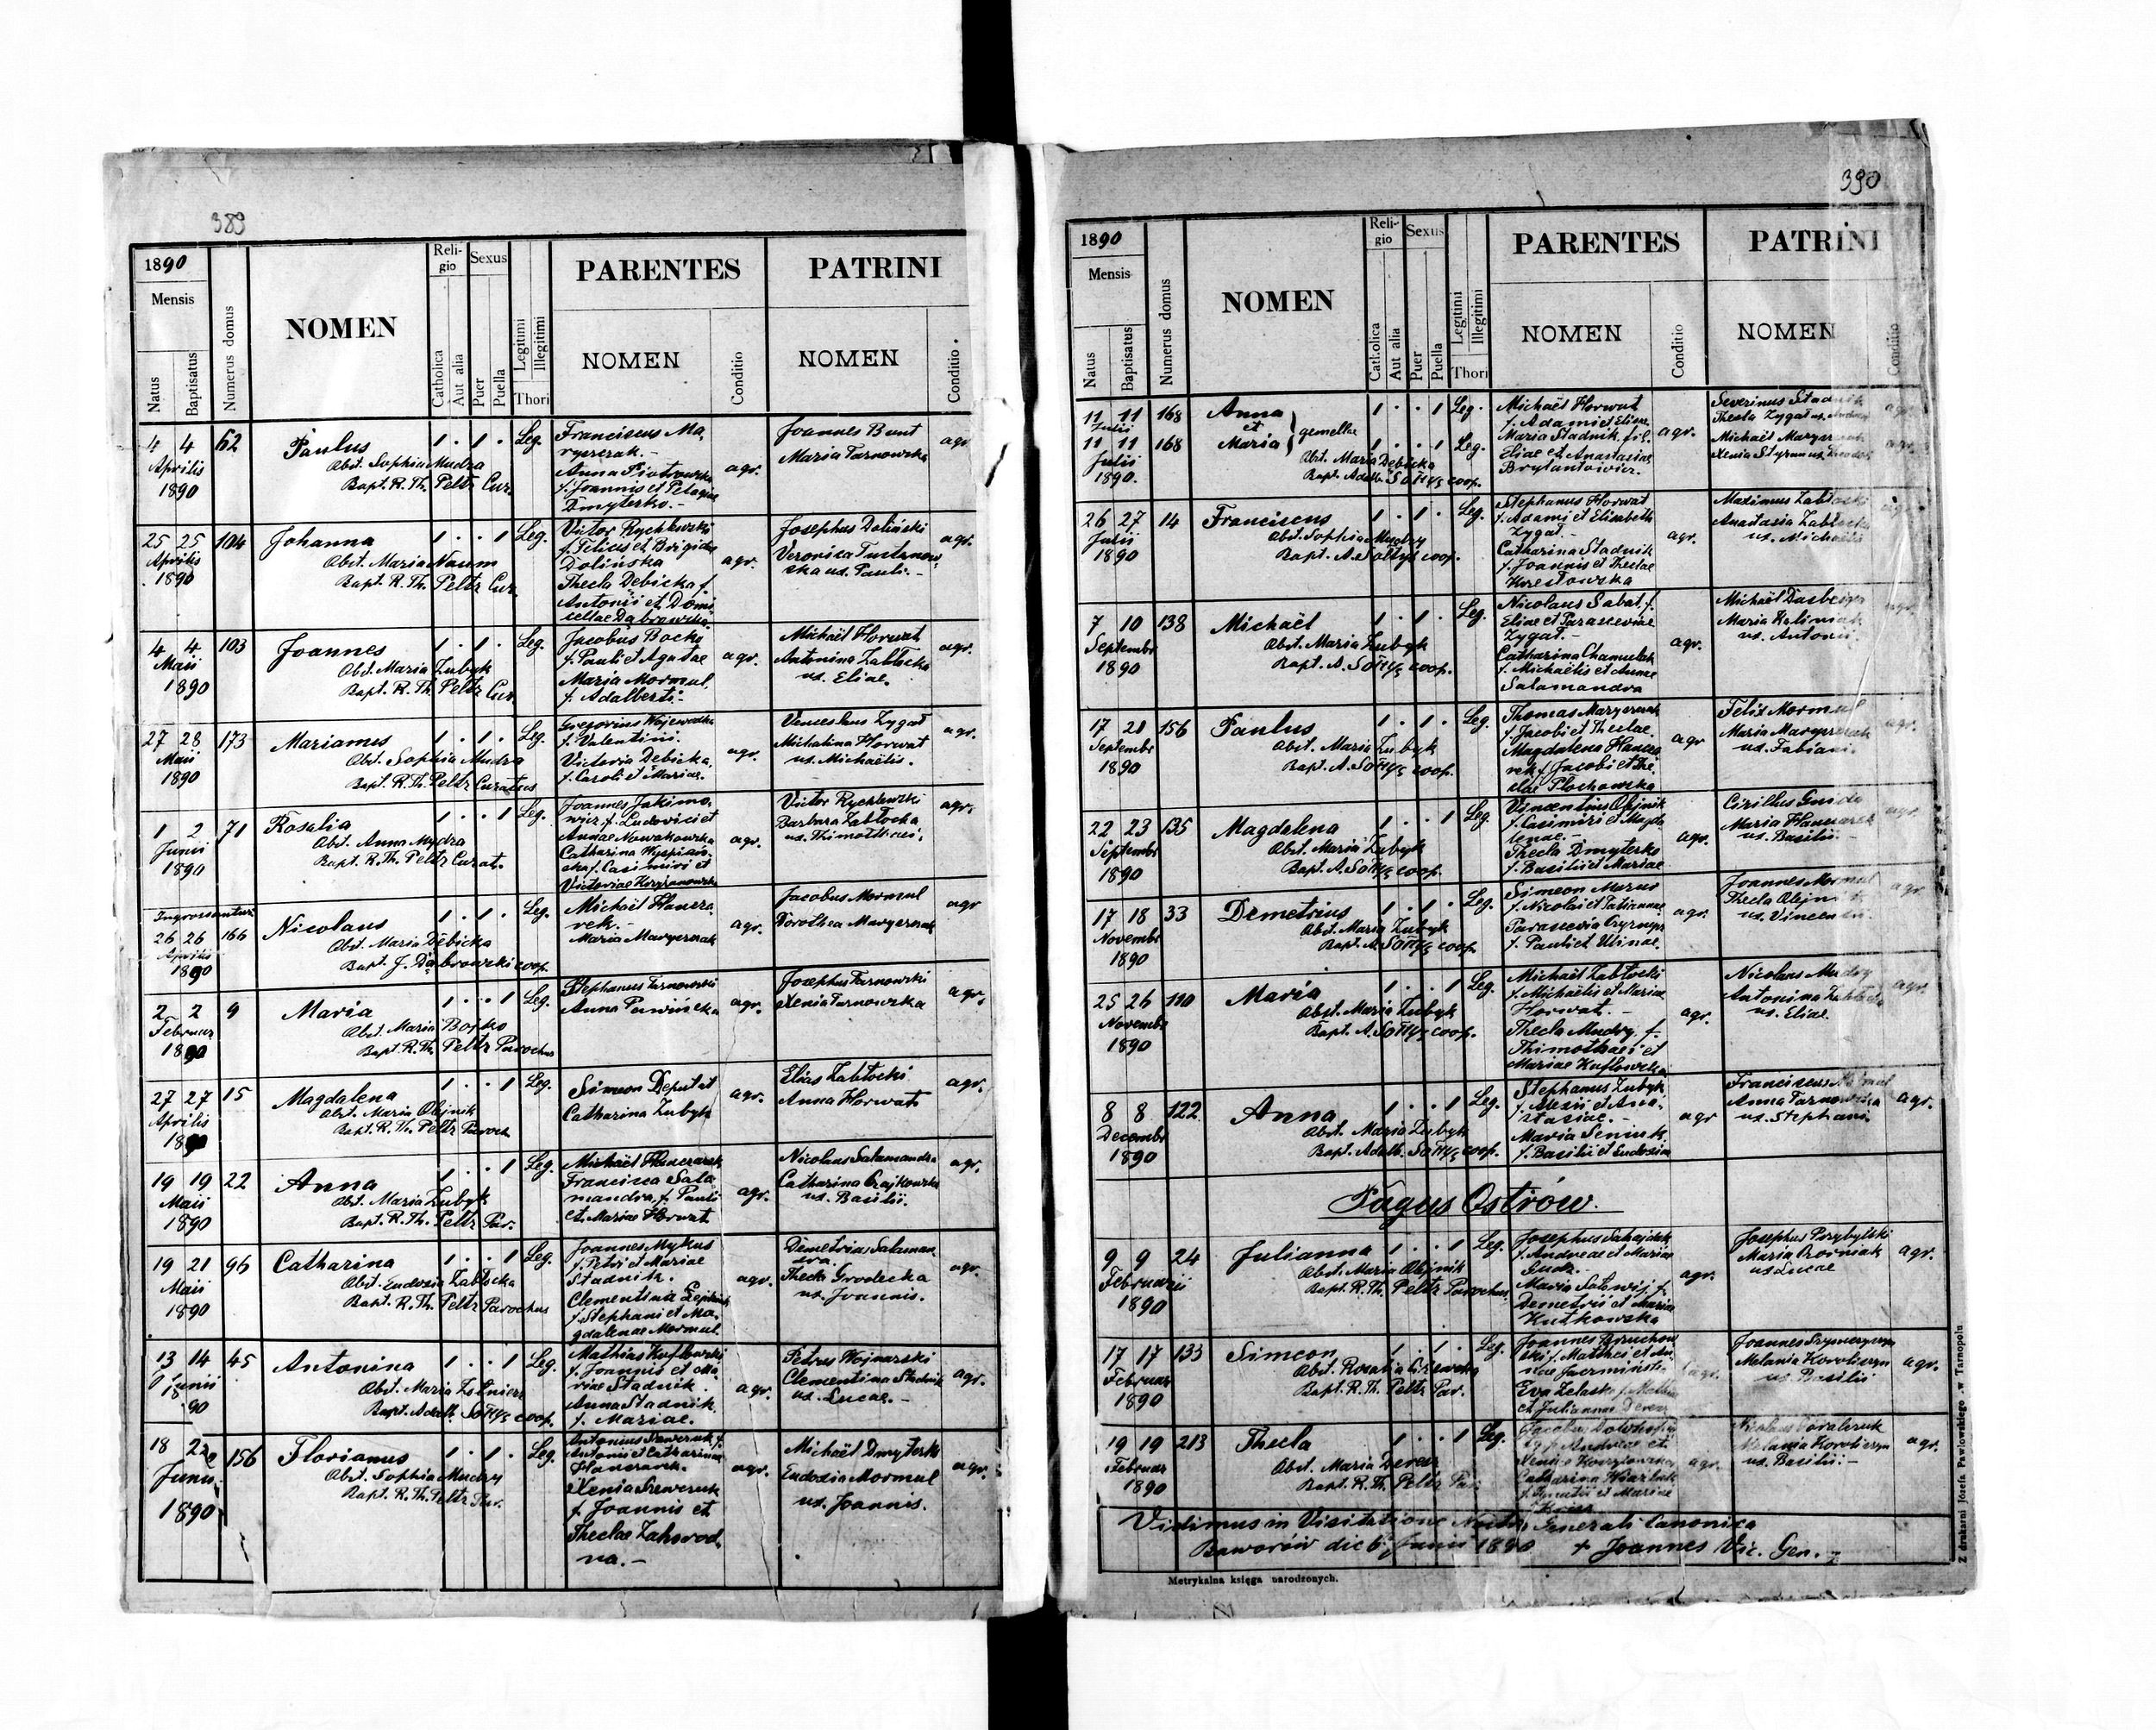 389
1890
Mensis
Natus
Baptisatus
Numerus domus
NOMEN
Reli-
gio
Catholica
Aut alia
Sexus
Puer
Puella
Legitimi
Illegitimi
Thori
PARENTES
NOMEN
Conditio
PATRINI
NOMEN
Conditio
4 4 62 Paulus 1 . 1 . Leg.
Aprilis
1890
Obst. Sophia Mudra
Bapt. R. Th. Peltz Cur.
Franciscus Ma-
ryszczak.-
Anna Piotrowska
f. Joannis et Pelagiae
Dmyterko.-
agr.
Joannes Bunt
Maria Tarnowska
agr.
25 25 104 Johanna 1 . . 1 Leg.
Aprilis
1890
Obst. Maria Naum
Bapt. R. Th. Peltz Cur.
Victor Rychlewski
f. Felicis et Brigidae
Dolińska
Thecla Dębicka f.
Antonii et Domi-
cellae Dąbrowska.
agr.
Josephus Doliński
Veronica
ska ux. Pauli.-
agr.
4 4 103 Joannes 1 . 1 . Leg.
Maii
1890
Obst. Maria Zubyk
Bapt. R. Th. Peltz Cur.
Jacobus Bocko
f. Pauli et Agatae
Maria Mormul,
f. Adalberti.-
agr.
Michaël Horwat
Antonina Zabłocka
ux. Eliae.
agr.
27 28 173 Marianus 1 . 1 . Leg.
Maii
1890
Obst. Sophia Mudra
Bapt. R. Th. Peltz Curatus
Gregorius Wojewodka
f. Valentini.
Victoria Dębicka,
f. Caroli et Mariae.
agr.
Venceslaus Zygat
Michalina Horwat
ux. Michaelis.
agr.
1 2 71 Rosalia 1 . . 1 Leg.
Junii
1890
Obst. Anna Mudra
Bapt. R. Th. Peltz Curat.
Joannes Jakimo-
wicz f. Ludovici et
Annae Nowakowska
Catharina
ska f. Casimiri et
Victoriae Krzyżanowska
agr.
Victor Rychlewski
Barbara Zabłocka
ux. Thimothaei.
agr.
Ingrossantur:
26 26 166 Nicolaus 1 . 1 . Leg.
Aprilis
1890
Obst. Maria Dębicka
Bapt. J. Dąbrowski coop.
Michaël Hancza-
rek.-
Maria Maryszczak
agr.
Jacobus Mormul
Dorothea Maryszczak
agr
2 2 9 Maria 1 . . 1 Leg.
Februar
1890
Obst. Maria Bojko
Bapt. R. Th. Peltz Parochus
Stephanus Tarnowski
Anna Pawińska
agr.
Josephus Tarnowski
Xenia Tarnowska
agr.
27 27 15 Magdalena 1 . . 1 Leg.
Aprilis
1890
Obst. Maria Olejnik
Bapt. R. Th. Peltz Paroch
Simeon Deputat
Catharina Zubyk
agr.
Elias Zabłocki
Anna Horwat
agr.
19 19 22 Anna 1 . . 1 Leg.
Maii
1890
Obst. Maria Zubyk
Bapt. R. Th. Peltz Par.
Michaël Hanczarek
Francisca Sala-
mandra, f. Pauli
et Mariae Horwat
agr.
Nicolaus Salamandra
Catharina Czajkowska
ux. Basilii.
agr.
19 21 96 Catharina 1 . . 1 Leg.
Maii
1890
Obst. Eudosia Zabłocka
Bapt. R. Th. Peltz Parochus
Joannes Mykus
f. Petri et Mariae
Stadnik.
Clementina
f. Stephani et Ma-
gdalenae Mormul
agr.
Demetrius Salaman-
dra.
Thecla Grodecka
ux. Joannis.
agr.
13 14 45 Antonina 1 . . 1 Leg.
Junii
1890
Obst. Maria Żołnierz
Bapt. Adalb. Sołtys coop.
Mathias Kozłowski
f. Joannis et Ma-
riae Stadnik.
Anna Stadnik
f. Mariae.
agr.
Petrus Wojnarski
Clementina Stadnik
ux. Lucae.-
agr.
18 22 156 Florianus 1 . 1 . Leg.
Junii
1890
Obst. Sophia Mudry
Bapt. R. Th. Peltz Par.
Antonius Szewczuk f.
Antonii et Catharinae
Hanczarek.
Xenia Szewczuk
f. Joannis et
Theclae Zahorod-
na.-
agr.
Michaël Dmyterko
Eudoxia Mormul
ux. Joannis.
agr.
390
1890
Mensis
Natus
Baptisatus
Numerus domus
NOMEN
Reli-
gio
Catholica
Aut alia
Sexus
Puer
Puella
Legitimi
Illegitimi
Thori
PARENTES
NOMEN
Conditio
PATRINI
NOMEN
Conditio
11 11 168 Anna 1 . . 1 Leg.
Julii
et
gemellae
11 11 168 Maria 1 . . 1 Leg.
Julii
1890.
Obst. Maria Dębicka
Bapt. Adalb. Sołtys coop.
Michaël Horwat
f. Adami et Elisae.
Maria Stadnik, fil.
Eliae et Anastasiae
Brytantowicz.
agr.
Severinus Stadnik
Thecla Zygat ux.
Michaël Maryszczak
Xenia
26 27 14 Franciscus 1 . 1 . Leg.
Julii
1890
Obst. Sophia Mudry
Bapt. A. Sołtys coop.
Stephanus Horwat
f. Adami et Elisabeth
Zygat.-
Catharina Stadnik
f. Joannis et Theclae
Krestowska
agr.
Maximus Zabłocki
Anastasia Zabłocka
ux. Michaelis
7 10 138 Michaël 1 . 1 . Leg.
Septembr
1890
Obst. Maria Zubyk
Bapt. A. Sołtys coop.
Nicolaus Sabat, f.
Eliae et Parasceviae
Zygat.-
Catharina Chamulak
f. Michaëlis et Annae
Salamandra
agr.
Michaël
Maria Kaliniak
ux. Antonii.
agr.
17 21 156 Paulus 1 . 1 . Leg.
Septembr
1890
Obst. Maria Zubyk
Bapt. A. Sołtys coop.
Thomas Maryszczak
f. Jacobi et Theclae.
Magdalena Hancza-
rek f. Jacobi et The-
clae Płochowska
agr
Felix Mormul
Maria Maryszczak
ux. Fabiani.
agr.
22 23 135 Magdalena 1 . . 1 Leg.
Septembr
1890
Obst. Maria Zubyk
Bapt. A. Sołtys coop.
Vincentius Olejnik
f. Casimiri et Magda-
lenae.-
Thecla Dmyterko
f. Basilii et Mariae
agr.
Cirillus Guida
Maria Hanczarek
ux. Basilii.-
agr.
17 18 33 Demetrius 1 . 1 . Leg.
Novembr
1890
Obst. Maria Zubyk
Bapt. A. Sołtys coop.
Simeon Mazur
f. Nicolai et Tatiannae
Parascevia
f. Pauli et
agr.
Joannes Mormul
Thecla Olejnik
ux. Vincentii.
agr.
25 26 110 Maria 1 . . 1 Leg.
Novembr
1890
Obst. Maria Zubyk
Bapt. A. Sołtys coop.
Michaël Zabłocki
f. Michaëlis et Mariae
Horwat.-
Thecla Mudry, f.
Thimothaei et
Mariae Kozłowska
agr.
Nicolaus Mudry
Antonina Zabłocka
ux. Eliae.
agr.
8 8 122 Anna 1 . . 1 Leg.
Decembr
1890
Obst. Maria Zubyk
Bapt. Adalb. Sołtys coop.
Stephanus Zubyk
f. Alexii et Ana-
stasiae.-
Maria Seniuk
f. Basilii et Eudosiae
agr
Franciscus Mormul
Anna Tarnowska
ux. Stephani
agr.
Pagus Ostrów.
9 9 24 Julianna 1 . . 1 Leg.
Februarii
1890
Obst. Maria Olejnik
Bapt. R. Th. Peltz Parochus
Josephus Sahajdak
f. Andreae et Mariae
Gudz.-
Maria Sołowij, f.
Demetrii et Mariae
Kutkowska
agr.
Josephus Przybylski
Maria Woźniak
ux Lucae
agr.
17 17 133 Simeon 1 . 1 . Leg.
Februar
1890
Obst. Rosalia
Bapt. R. Th. Peltz Par.
Joannes Bruchow-
ski f. Matthei et An-
nae
Eva Żelasko f. Mathiae
et Juliannae Deresz
agr.
Joannes
Melania Korolczyn
ux. Basilii
agr.
19 19 213 Thecla 1 . . 1 Leg.
Februar
1890
Obst. Maria Deresz
Bapt. R. Th. Peltz Par.
f. Andreae et
Xeniae
Catharina
f. Ignatii et Mariae
agr.
Nicolaus Kowalczuk
Melania Korolczyn
ux. Basilii.-
agr.
Vidimus in Visitatione Nostra Generali Canonica
Baworów die 6 Junii 1890 + Joannes Vic. Gen.
Metrykalna księga narodzonych.
Z drukarni Józefa Pawłowskiego w Tarnopolu